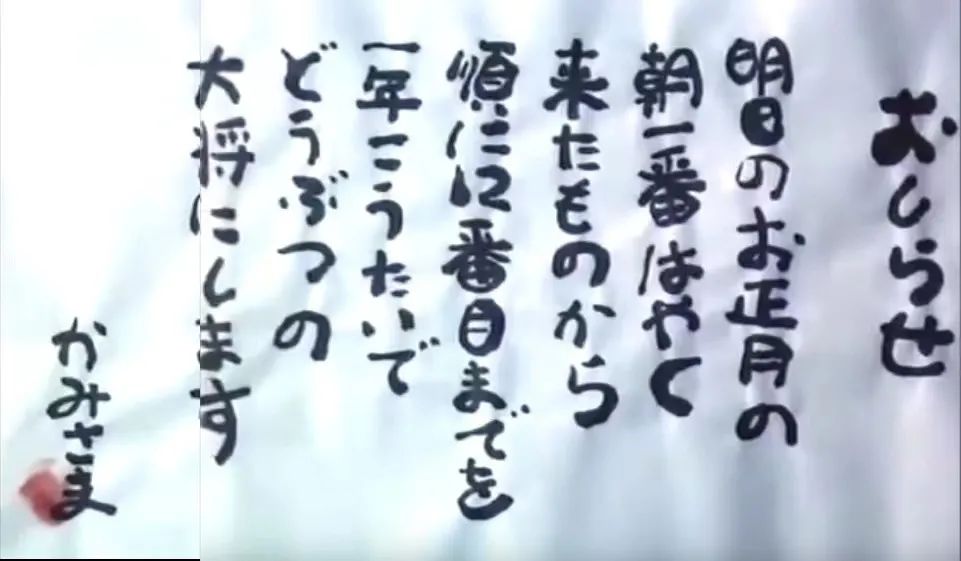 おしらせ
明日のお正月の
朝一番はやく
来たものから
順に12番目までを
一年こうたいで
どうぶつの
大将にします
かみさま